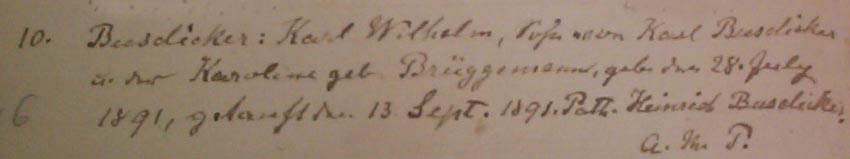 10. Busdicker: Karl Wilhelm, Sohn von Karl Busdicker
u. der Karoline geb. Brüggemann, geb. den 28. July
6 1891, getauft den 13 Sept. 1891. Path. Heinrich Busdicker.